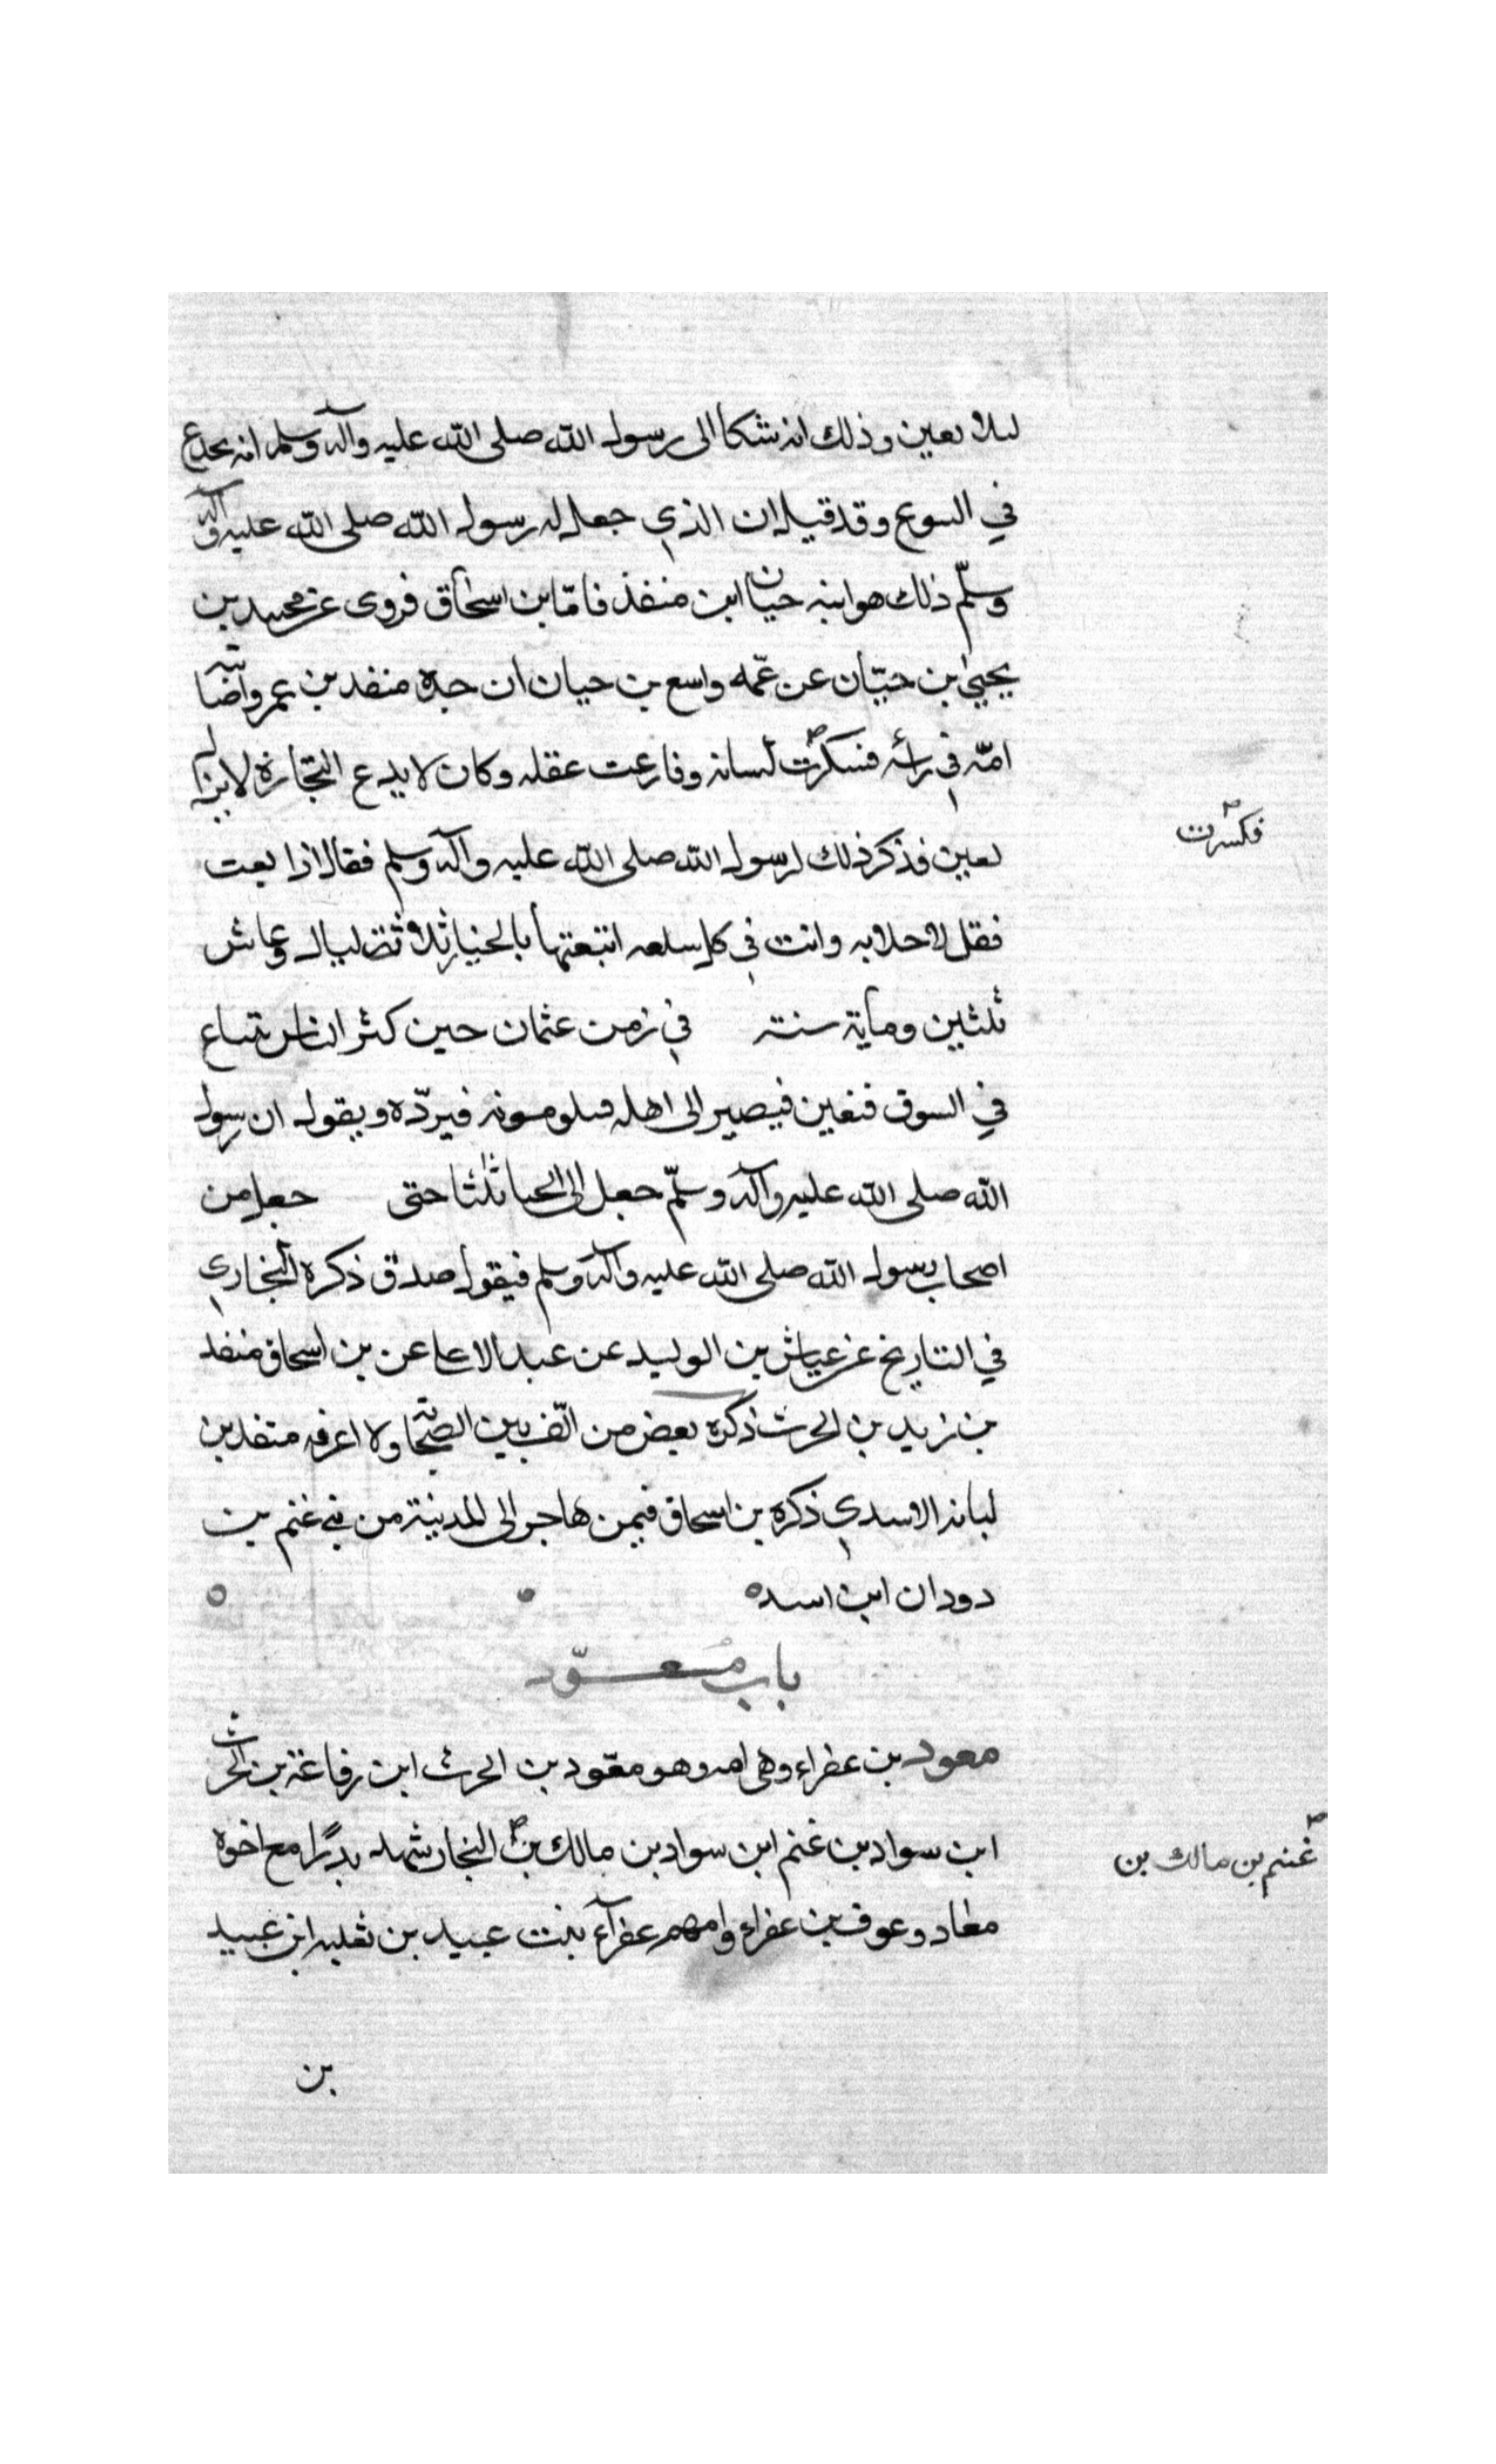 لىلا ىعىن وذلك انه شكا الى رسول الله صلى الله عليه وآله وسلم انه ىخدع
في البيوع وقد قيل ان الذي جعل له رسول الله صلى الله عليه وآله
وسلّم ذلك هو ابنه حيان ابن منقذ فامّا بن اسحٰاق فروى عن محمد بن
يحيىٰ بن حبّان عن عمّه واسع بن حبان ان جده منقد بن عمرو اضابته
امّه في رأسه فسكرت لسانه وفارعت عقله وكان لا يدع التجّارة لا يزال
فكسرت
ىعىن فذكر ذلك لرسول الله صلى الله عليه وآله وسلم فقال اذا بعت
فقل لا خلابه وانت في كل سلعه ابتعتها بالخيار ثلاثة ليال وعاش
ثلثين ومأية سنة في زمن عثمان حين كثر الناس يتباع
في السوق فىغبن فيصير الى اهله فىلومونه فيردّه ويقول ان رسول
الله صلى الله عليه وآله وسلّم جعل الى الخيا ثلثا حتى جعل من
اصحاب رسول الله صلى الله عليه وآله وسلم فيقول صدق ذكره البخاري
في التاريخ عن عياش بن الوليد عن عبد الاعلا عن بن اسحاق منقد
بن زيد بن الحرث ذكره بعض من الّف بين الصحابة ولا اعرفه منقد بن
لبانه الاسدي ذكره بن اسحاق فيمن هاجر الى المدينة من بني غنم بن
دودان ابن اسد ه
باب مُعوّد
معود بن عفراء وهي امه وهو معّود بن الحرث ابن رفاعة بن الحرث
ابن سواد بن غنم ابن سواد بن مالك بن النجار شهد بدرًا مع اخوه
غنم بن مالك بن
معاد وعوف بن عفراء وامهم عفرآء بنت عبيد بن ثعلبه ابن عبيد
بن